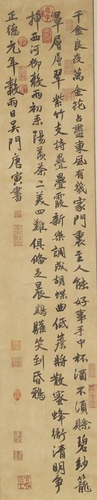 千金良夜萬金花占盡東風有幾家門裏主人能好事手中杯酒不須賒碧紗籠
罩層層翠紫竹支持疊疊霞新樂調成胡蝶曲低簷將散蜜蜂衙清明爭
插西河柳穀雨初來陽羨茶二美四難俱備足晨雞驩笑到昏鴉
正德元年穀雨日吳門唐寅書